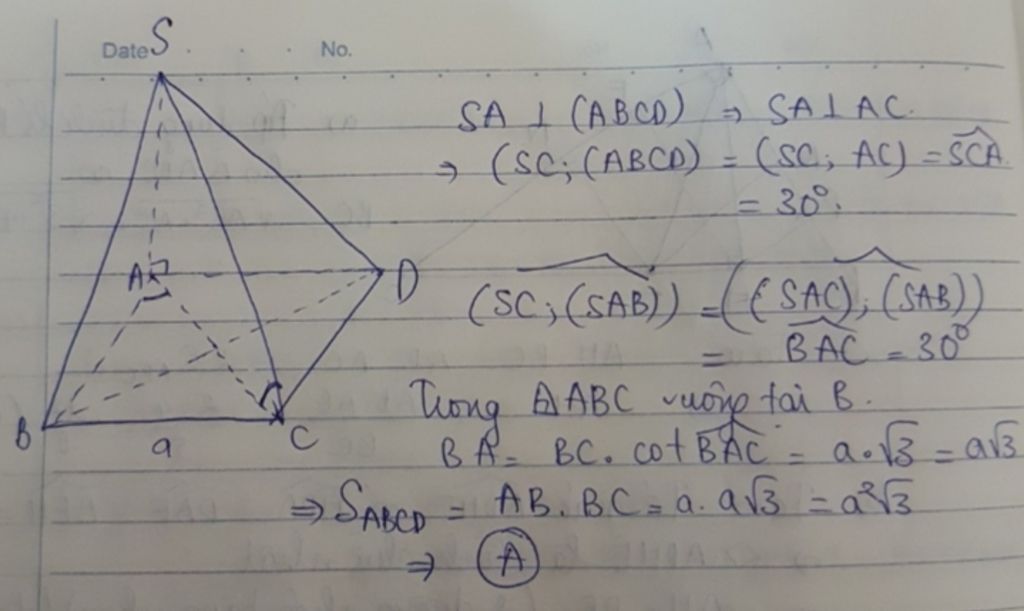 Date S No.
SA ⊥ (ABCD) ⇒ SA ⊥ AC.
⇒ (SC; (ABCD) = (SC; AC) = SCA
= 30°.
A D
(SC; (SAB)) = ((SAC); (SAB))
= BAC = 30°
Trong ΔABC vuông tại B.
B a C
BA = BC. cot BAC = a.√3 = a√3
⇒ S_ABCD = AB. BC = a. a√3 = a²√3
⇒ A